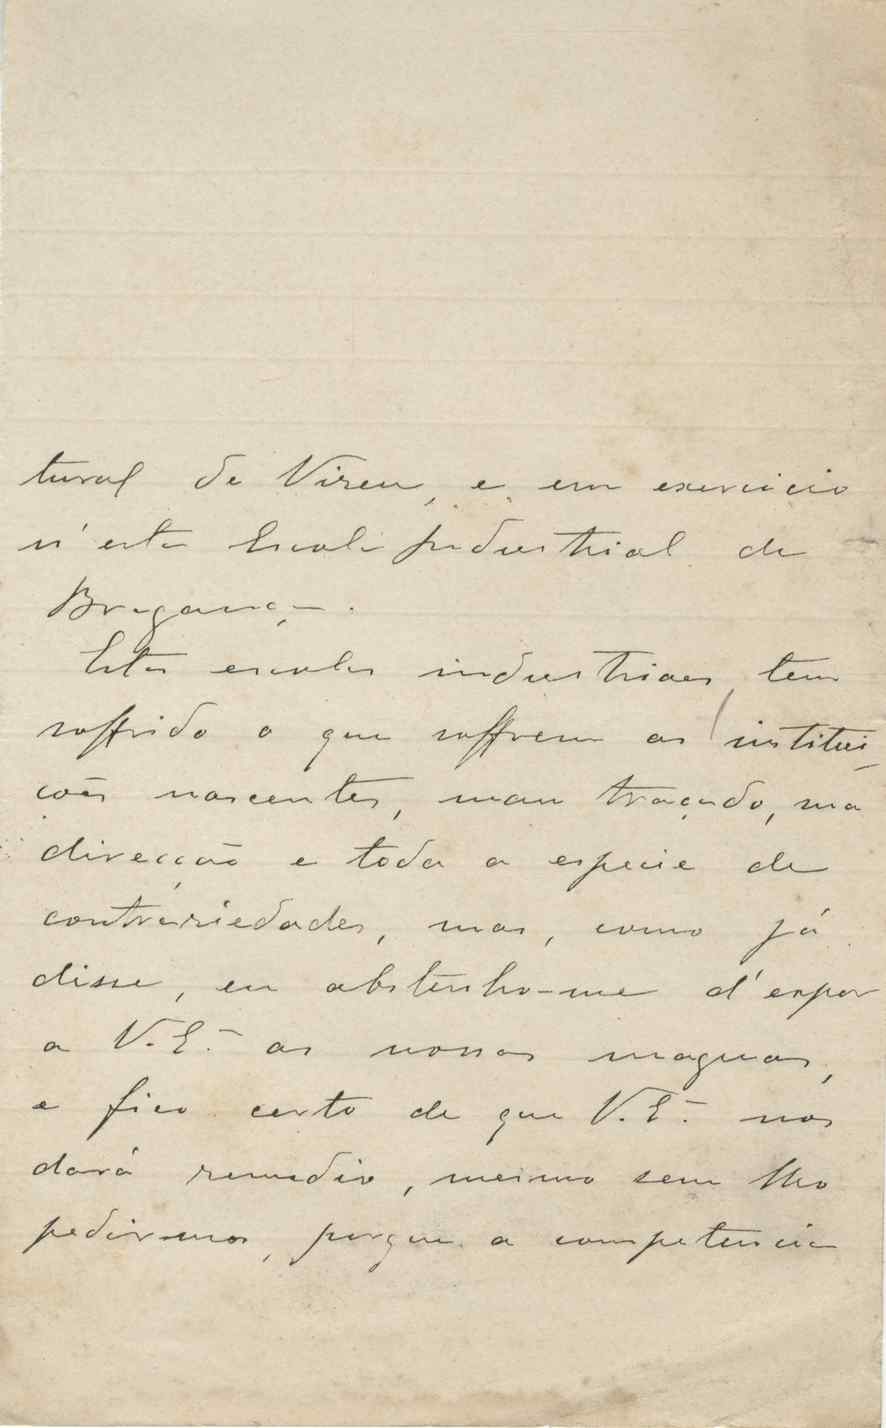 tural de Vizeu, e em exercicio
n'esta Escola Industrial de
Bragança.
Estas escolas industriaes tem
soffrido o que soffrem as institui-
ções nascentes, mau traçado, má
direcção e toda a especie de
contrariedades, mas, como já
disse, eu abstenho-me d'expor
a V. Eª as nossas maguas,
e fico certo de que V. Eª nos
dará remedio, mesmo sem lho
pedir-mos, porque a competencia